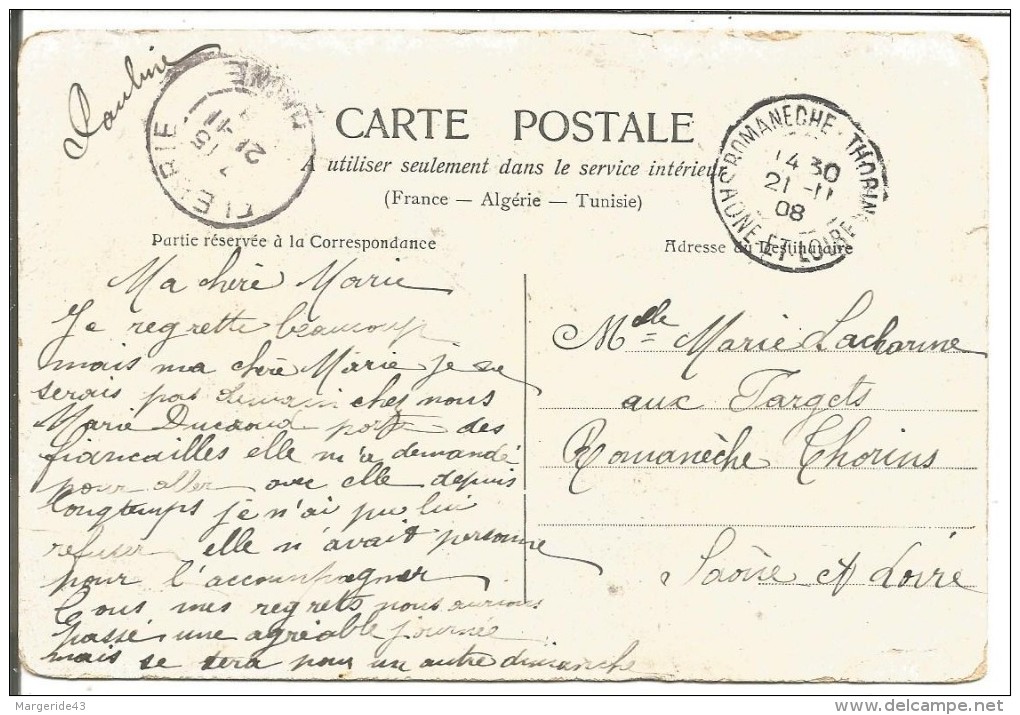 Pauline
FLEURIE
RHONE
7 15
21 11
CARTE POSTALE
A utiliser seulement dans le service intérieur
(France — Algérie — Tunisie)
ROMANECHE-THORINS
14 30
21 - 11
08
SAONE-ET-LOIRE
Partie réservée à la Correspondance
Adresse du Destinataire
Ma chère Marie
Je regrette beaucoup
mais ma chère Marie je ne
serais pas demain chez nous
Marie porte des
fiancailles elle m'a demandé
pour aller avec elle depuis
longtemps je n'ai pu lui
refuser elle n'avait personne
pour l'accompagner
Tous mes regrets nous aurions
passé une agréable journée
mais se sera pour un autre dimanche
Melle Marie Lacharme
aux Fargets
Romanèche Thorins
Saône et Loire
Margeride43
delcampe.net